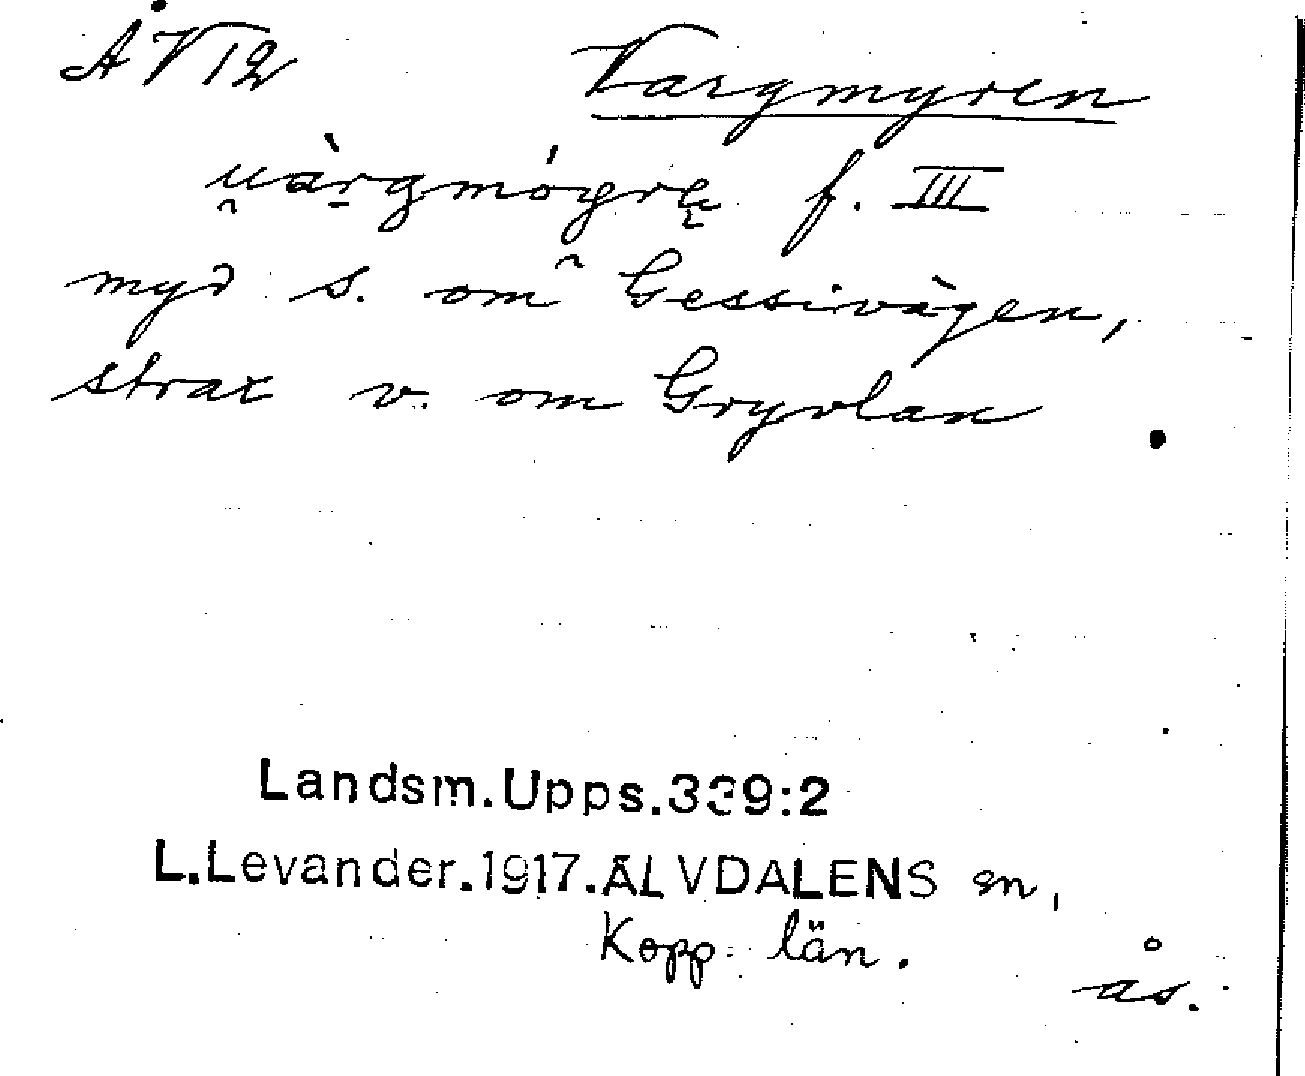 ÅV12 Vargmyren
u̯àrgmógrę f. III
myr s. om Gessivägen,
strax v. om Gryvlan
Landsm.Upps.339:2
L.Levander.1917.ÄLVDALENS sn,
Kopp. län.
ås.